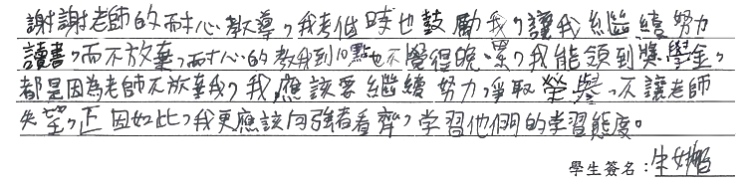 謝謝老師的耐心教導,我考低時也鼓勵我,讓我繼續努力
讀書,而不放棄,耐心的教我到10點也不覺得晚、累,我能領到獎學金,
都是因為老師不放棄我,我應該要繼續努力,爭取榮譽,不讓老師
失望,正因如此,我更應該向強者看齊,学習他們的学習態度。
學生簽名: